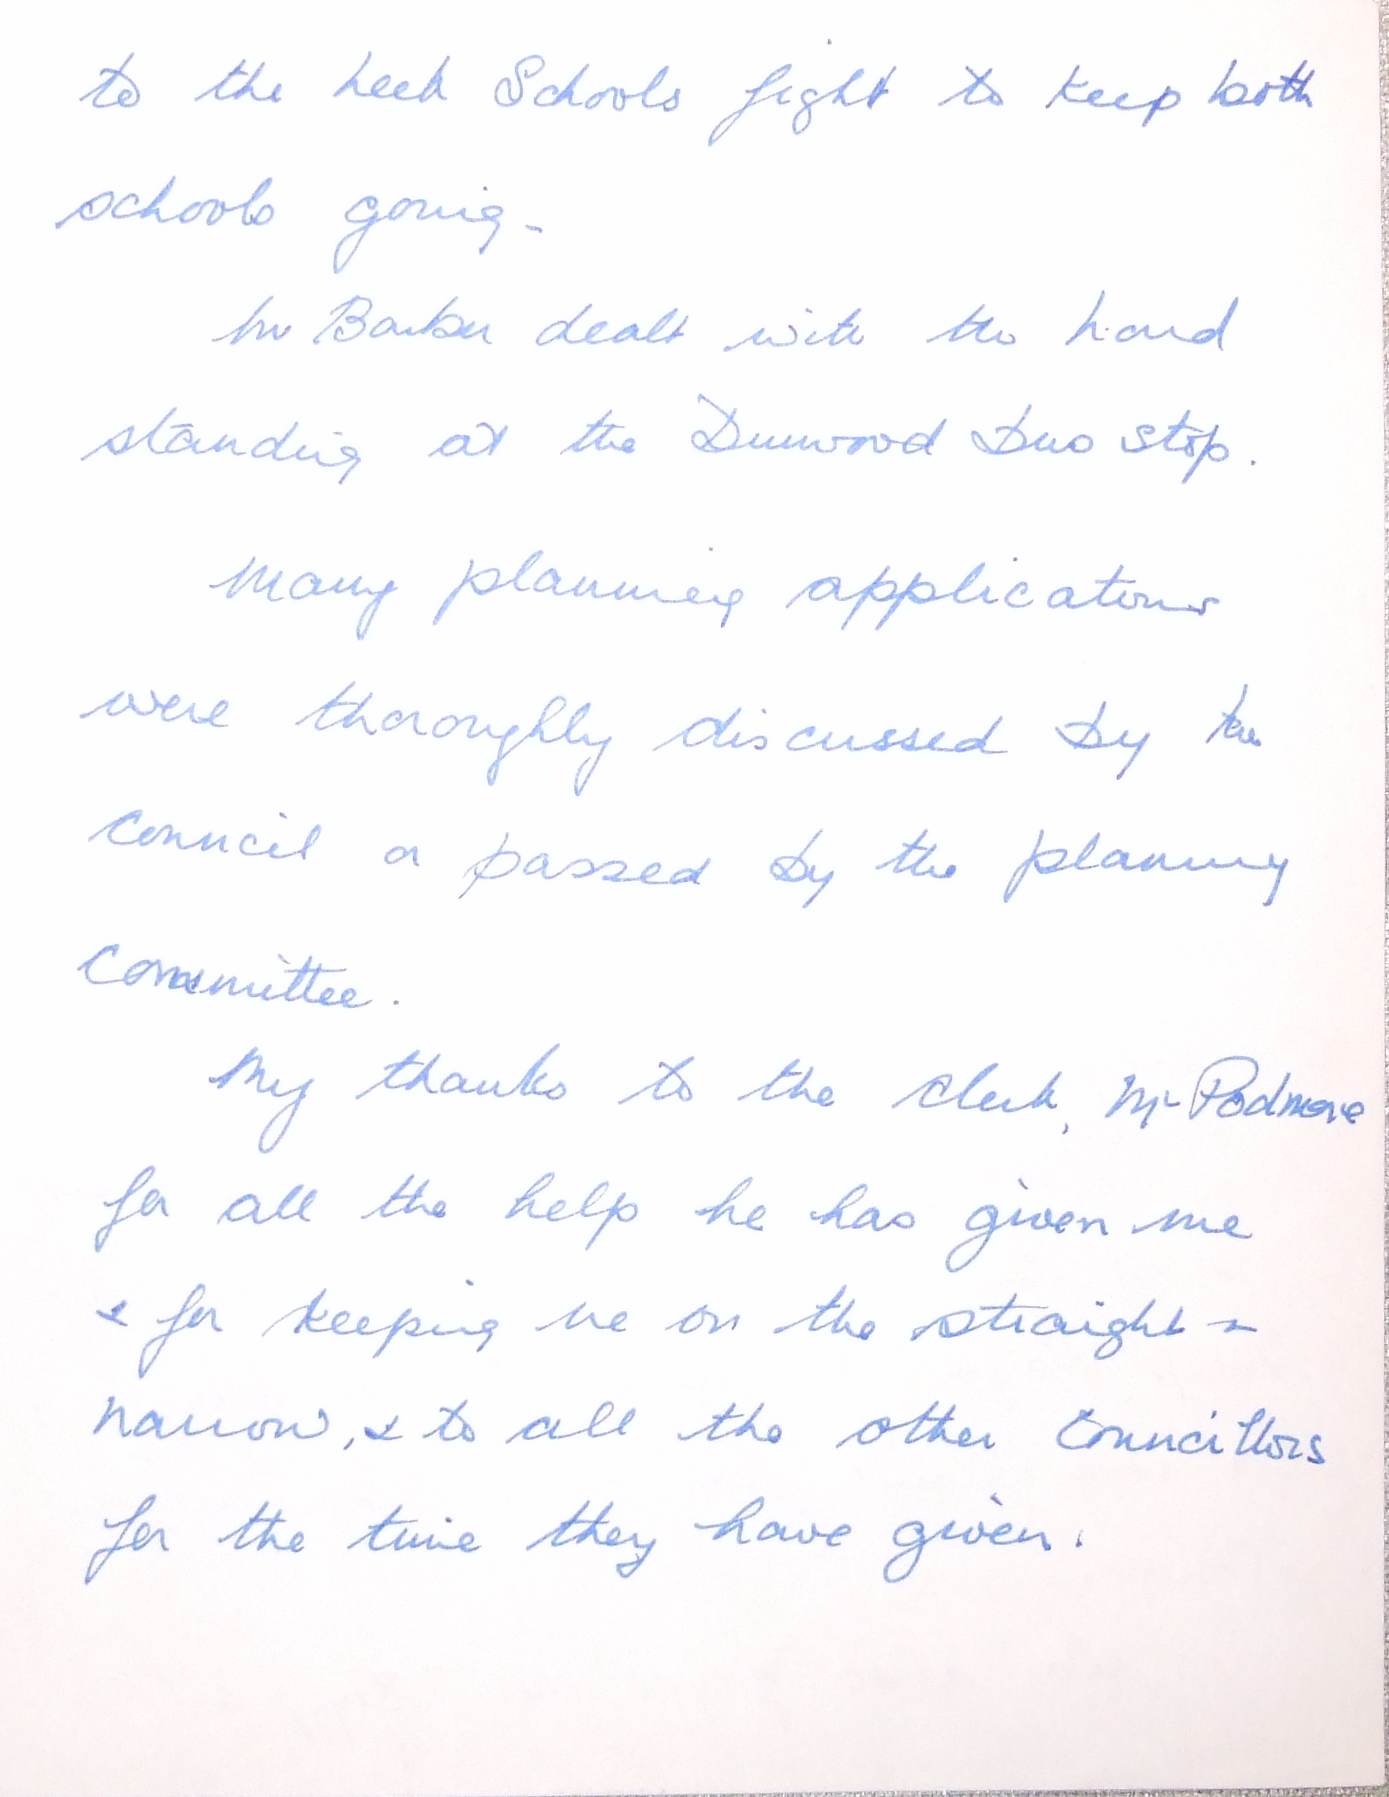 to the Leek Schools fight to keep both
schools going.
Mr Barker dealt with the hard
standing at the Dunwood bus stop.
Many planning applications
were thoroughly discussed by the
Council or passed by the planning
Committee.
My thanks to the clerk, Mr Podmore
for all the help he has given me
& for keeping me on the straight &
narrow, & to all the other Councillors
for the time they have given.